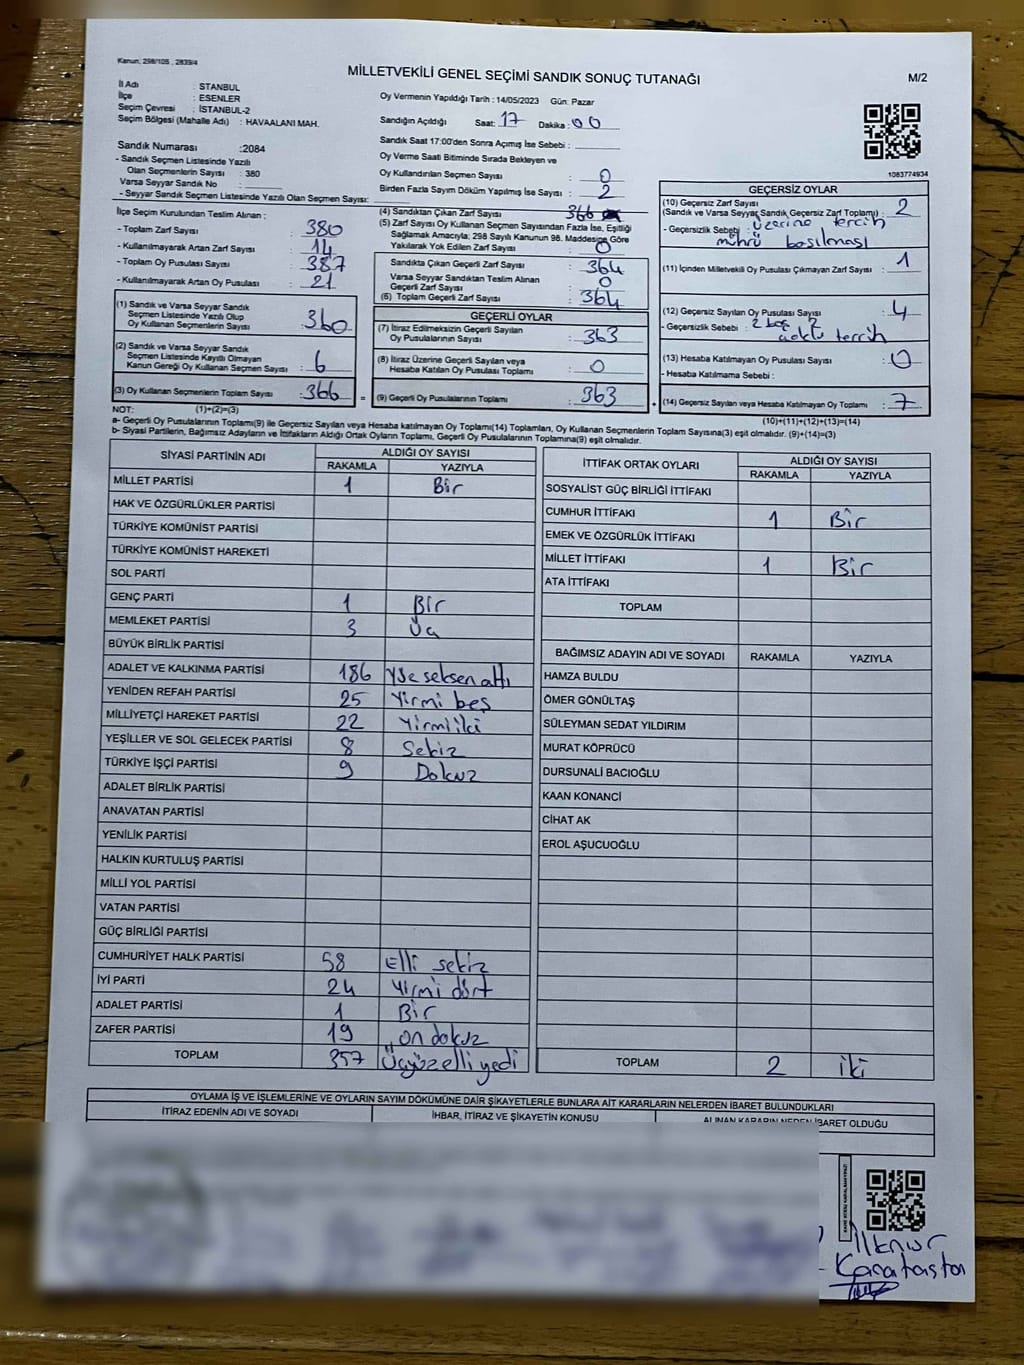 Kanun: 298/105 , 2839/4
MİLLETVEKİLİ GENEL SEÇİMİ SANDIK SONUÇ TUTANAĞI
M/2
İl Adı : STANBUL
İlçe : ESENLER
Seçim Çevresi : İSTANBUL-2
Seçim Bölgesi (Mahalle Adı) : HAVAALANI MAH.
Sandık Numarası :2084
- Sandık Seçmen Listesinde Yazılı
Olan Seçmenlerin Sayısı : 380
Varsa Seyyar Sandık No :
- Seyyar Sandık Seçmen Listesinde Yazılı Olan Seçmen Sayısı:
Oy Vermenin Yapıldığı Tarih : 14/05/2023 Gün: Pazar
Sandığın Açıldığı Saat: 17 Dakika : 00
Sandık Saat 17:00'den Sonra Açımış İse Sebebi :
Oy Verme Saati Bitiminde Sırada Bekleyen ve
Oy Kullandırılan Seçmen Sayısı : 0
Birden Fazla Sayım Döküm Yapılmış İse Sayısı : 2
1083774934
İlçe Seçim Kurulundan Teslim Alınan ;
- Toplam Zarf Sayısı : 380
- Kullanılmayarak Artan Zarf Sayısı : 14
- Toplam Oy Pusulası Sayısı : 387
- Kullanılmayarak Artan Oy Pusulası : 21
(1) Sandık ve Varsa Seyyar Sandık
Seçmen Listesinde Yazılı Olup
Oy Kullanan Seçmenlerin Sayısı : 360
(2) Sandık ve Varsa Seyyar Sandık
Seçmen Listesinde Kayıtlı Olmayan
Kanun Gereği Oy Kullanan Seçmen Sayısı : 6
(3) Oy Kullanan Seçmenlerin Toplam Sayısı : 366
(4) Sandıktan Çıkan Zarf Sayısı 366
(5) Zarf Sayısı Oy Kullanan Seçmen Sayısından Fazla İse, Eşitliği
Sağlamak Amacıyla; 298 Sayılı Kanunun 98. Maddesine Göre
Yakılarak Yok Edilen Zarf Sayısı : 0
Sandıkta Çıkan Geçerli Zarf Sayısı : 364
Varsa Seyyar Sandıktan Teslim Alınan
Geçerli Zarf Sayısı : 0
(6) Toplam Geçerli Zarf Sayısı : 364
GEÇERLİ OYLAR
(7) İtiraz Edilmeksizin Geçerli Sayılan
Oy Pusulalarının Sayısı : 363
(8) İtiraz Üzerine Geçerli Sayılan veya
Hesaba Katılan Oy Pusulası Toplamı : 0
= (9) Geçerli Oy Pusulalarının Toplamı : 363
GEÇERSİZ OYLAR
(10) Geçersiz Zarf Sayısı
(Sandık ve Varsa Seyyar Sandık Geçersiz Zarf Toplamı) : 2
- Geçersizlik Sebebi : Üzerine tercih
mührü basılması
(11) İçinden Milletvekili Oy Pusulası Çıkmayan Zarf Sayısı : 1
(12) Geçersiz Sayılan Oy Pusulası Sayısı : 4
- Geçersizlik Sebebi : 2 boş 2
tercih
(13) Hesaba Katılmayan Oy Pusulası Sayısı : 0
- Hesaba Katılmama Sebebi :
+ (14) Geçersiz Sayılan veya Hesaba Katılmayan Oy Toplamı : 7
NOT: (1)+(2)=(3)
(10)+(11)+(12)+(13)=(14)
a- Geçerli Oy Pusulalarının Toplamı(9) ile Geçersiz Sayılan veya Hesaba katılmayan Oy Toplamı(14) Toplamları, Oy Kullanan Seçmenlerin Toplam Sayısına(3) eşit olmalıdır. (9)+(14)=(3)
b- Siyasi Partilerin, Bağımsız Adayların ve İttifakların Aldığı Ortak Oyların Toplamı, Geçerli Oy Pusulalarının Toplamına(9) eşit olmalıdır.
SİYASİ PARTİNİN ADI ALDIĞI OY SAYISI
RAKAMLA YAZIYLA
MİLLET PARTİSİ 1 Bir
HAK VE ÖZGÜRLÜKLER PARTİSİ
TÜRKİYE KOMÜNİST PARTİSİ
TÜRKİYE KOMÜNİST HAREKETİ
SOL PARTİ
GENÇ PARTİ 1 Bir
MEMLEKET PARTİSİ 3 Üç
BÜYÜK BİRLİK PARTİSİ
ADALET VE KALKINMA PARTİSİ 186 Yüzseksenaltı
YENİDEN REFAH PARTİSİ 25 Yirmi beş
MİLLİYETÇİ HAREKET PARTİSİ 22 Yirmi iki
YEŞİLLER VE SOL GELECEK PARTİSİ 8 Sekiz
TÜRKİYE İŞÇİ PARTİSİ 9 Dokuz
ADALET BİRLİK PARTİSİ
ANAVATAN PARTİSİ
YENİLİK PARTİSİ
HALKIN KURTULUŞ PARTİSİ
MİLLİ YOL PARTİSİ
VATAN PARTİSİ
GÜÇ BİRLİĞİ PARTİSİ
CUMHURİYET HALK PARTİSİ 58 Elli sekiz
İYİ PARTİ 24 Yirmi dört
ADALET PARTİSİ 1 Bir
ZAFER PARTİSİ 19 on dokuz
TOPLAM 357 Üçyüzelliyedi
İTTİFAK ORTAK OYLARI ALDIĞI OY SAYISI
RAKAMLA YAZIYLA
SOSYALİST GÜÇ BİRLİĞİ İTTİFAKI
CUMHUR İTTİFAKI 1 Bir
EMEK VE ÖZGÜRLÜK İTTİFAKI
MİLLET İTTİFAKI 1 Bir
ATA İTTİFAKI
TOPLAM
BAĞIMSIZ ADAYIN ADI VE SOYADI RAKAMLA YAZIYLA
HAMZA BULDU
ÖMER GÖNÜLTAŞ
SÜLEYMAN SEDAT YILDIRIM
MURAT KÖPRÜCÜ
DURSUNALİ BACIOĞLU
KAAN KONANCİ
CİHAT AK
EROL AŞUCUOĞLU
TOPLAM 2 iki
OYLAMA İŞ VE İŞLEMLERİNE VE OYLARIN SAYIM DÖKÜMÜNE DAİR ŞİKAYETLERLE BUNLARA AİT KARARLARIN NELERDEN İBARET BULUNDUKLARI
İTİRAZ EDENİN ADI VE SOYADI İHBAR, İTİRAZ VE ŞİKAYETİN KONUSU ALINAN KARARIN NEDEN İBARET OLDUĞU
İlknur
Karataştan